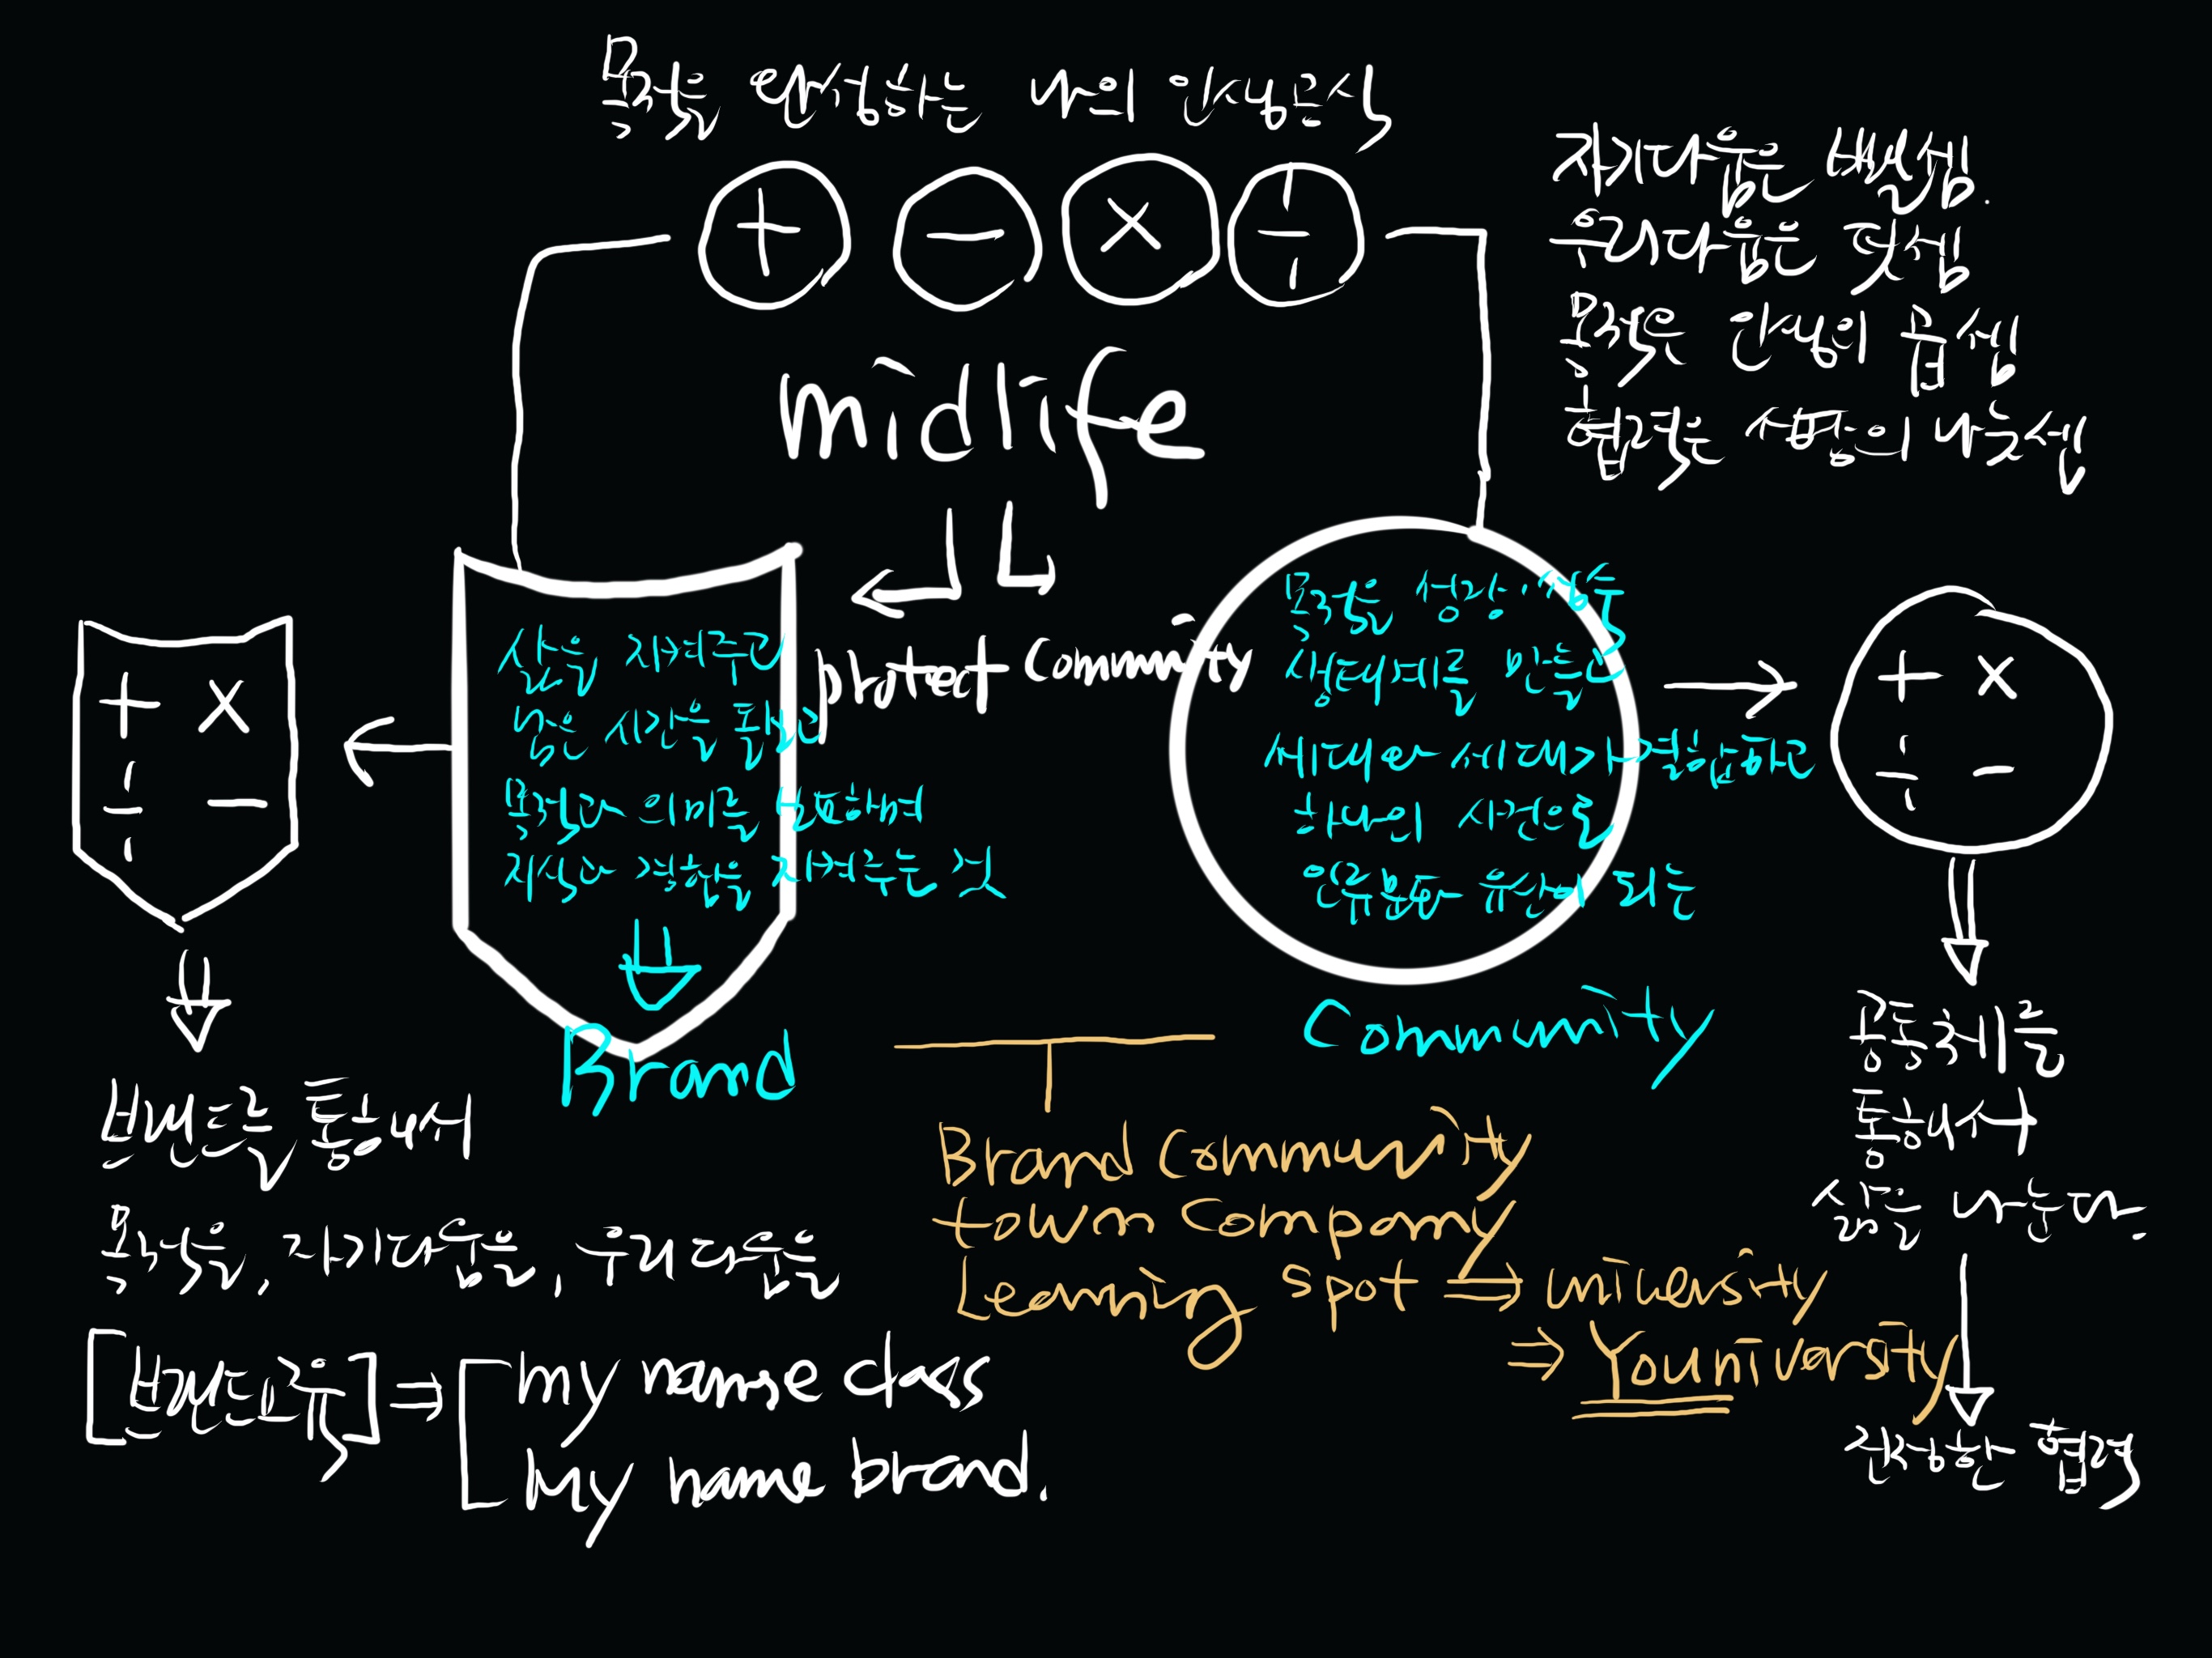 목적을 완성하는 나의 인생공식
+ - × ÷
자기다움은 뺄셈.
우리다움은 덧셈
목적은 인생의 곱셈
협력은 사명의 나눗셈
midlife
protect community
삶을 지켜주고
남은 시간을
목적과 의미를 보호하며
지식과 경험을 지켜주는 것
Brand
목적을 성장
생태계를 만들고
세대와 세대가 결합하고
하나의 사건으로
인류문화 유산이 되는
Community
+ ×
÷ -
+ ×
÷ -
브랜드를 통해서
목적을, 자기다움을, 우리다움을
[브랜드교육] ⇒ [my name class
my name brand.
Brand Community
town Company
Learning spot ⇒ university
⇒ Youniversity
공동체를
통해서
삶을 나눈다.
진정한 협력